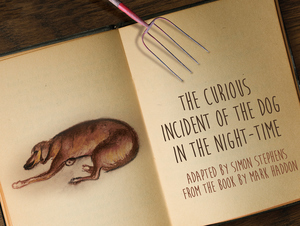 THE CURIOUS
INCIDENT OF THE DOG
IN THE NIGHT-TIME
ADAPTED BY SIMON STEPHENS
FROM THE BOOK BY MARK HADDON